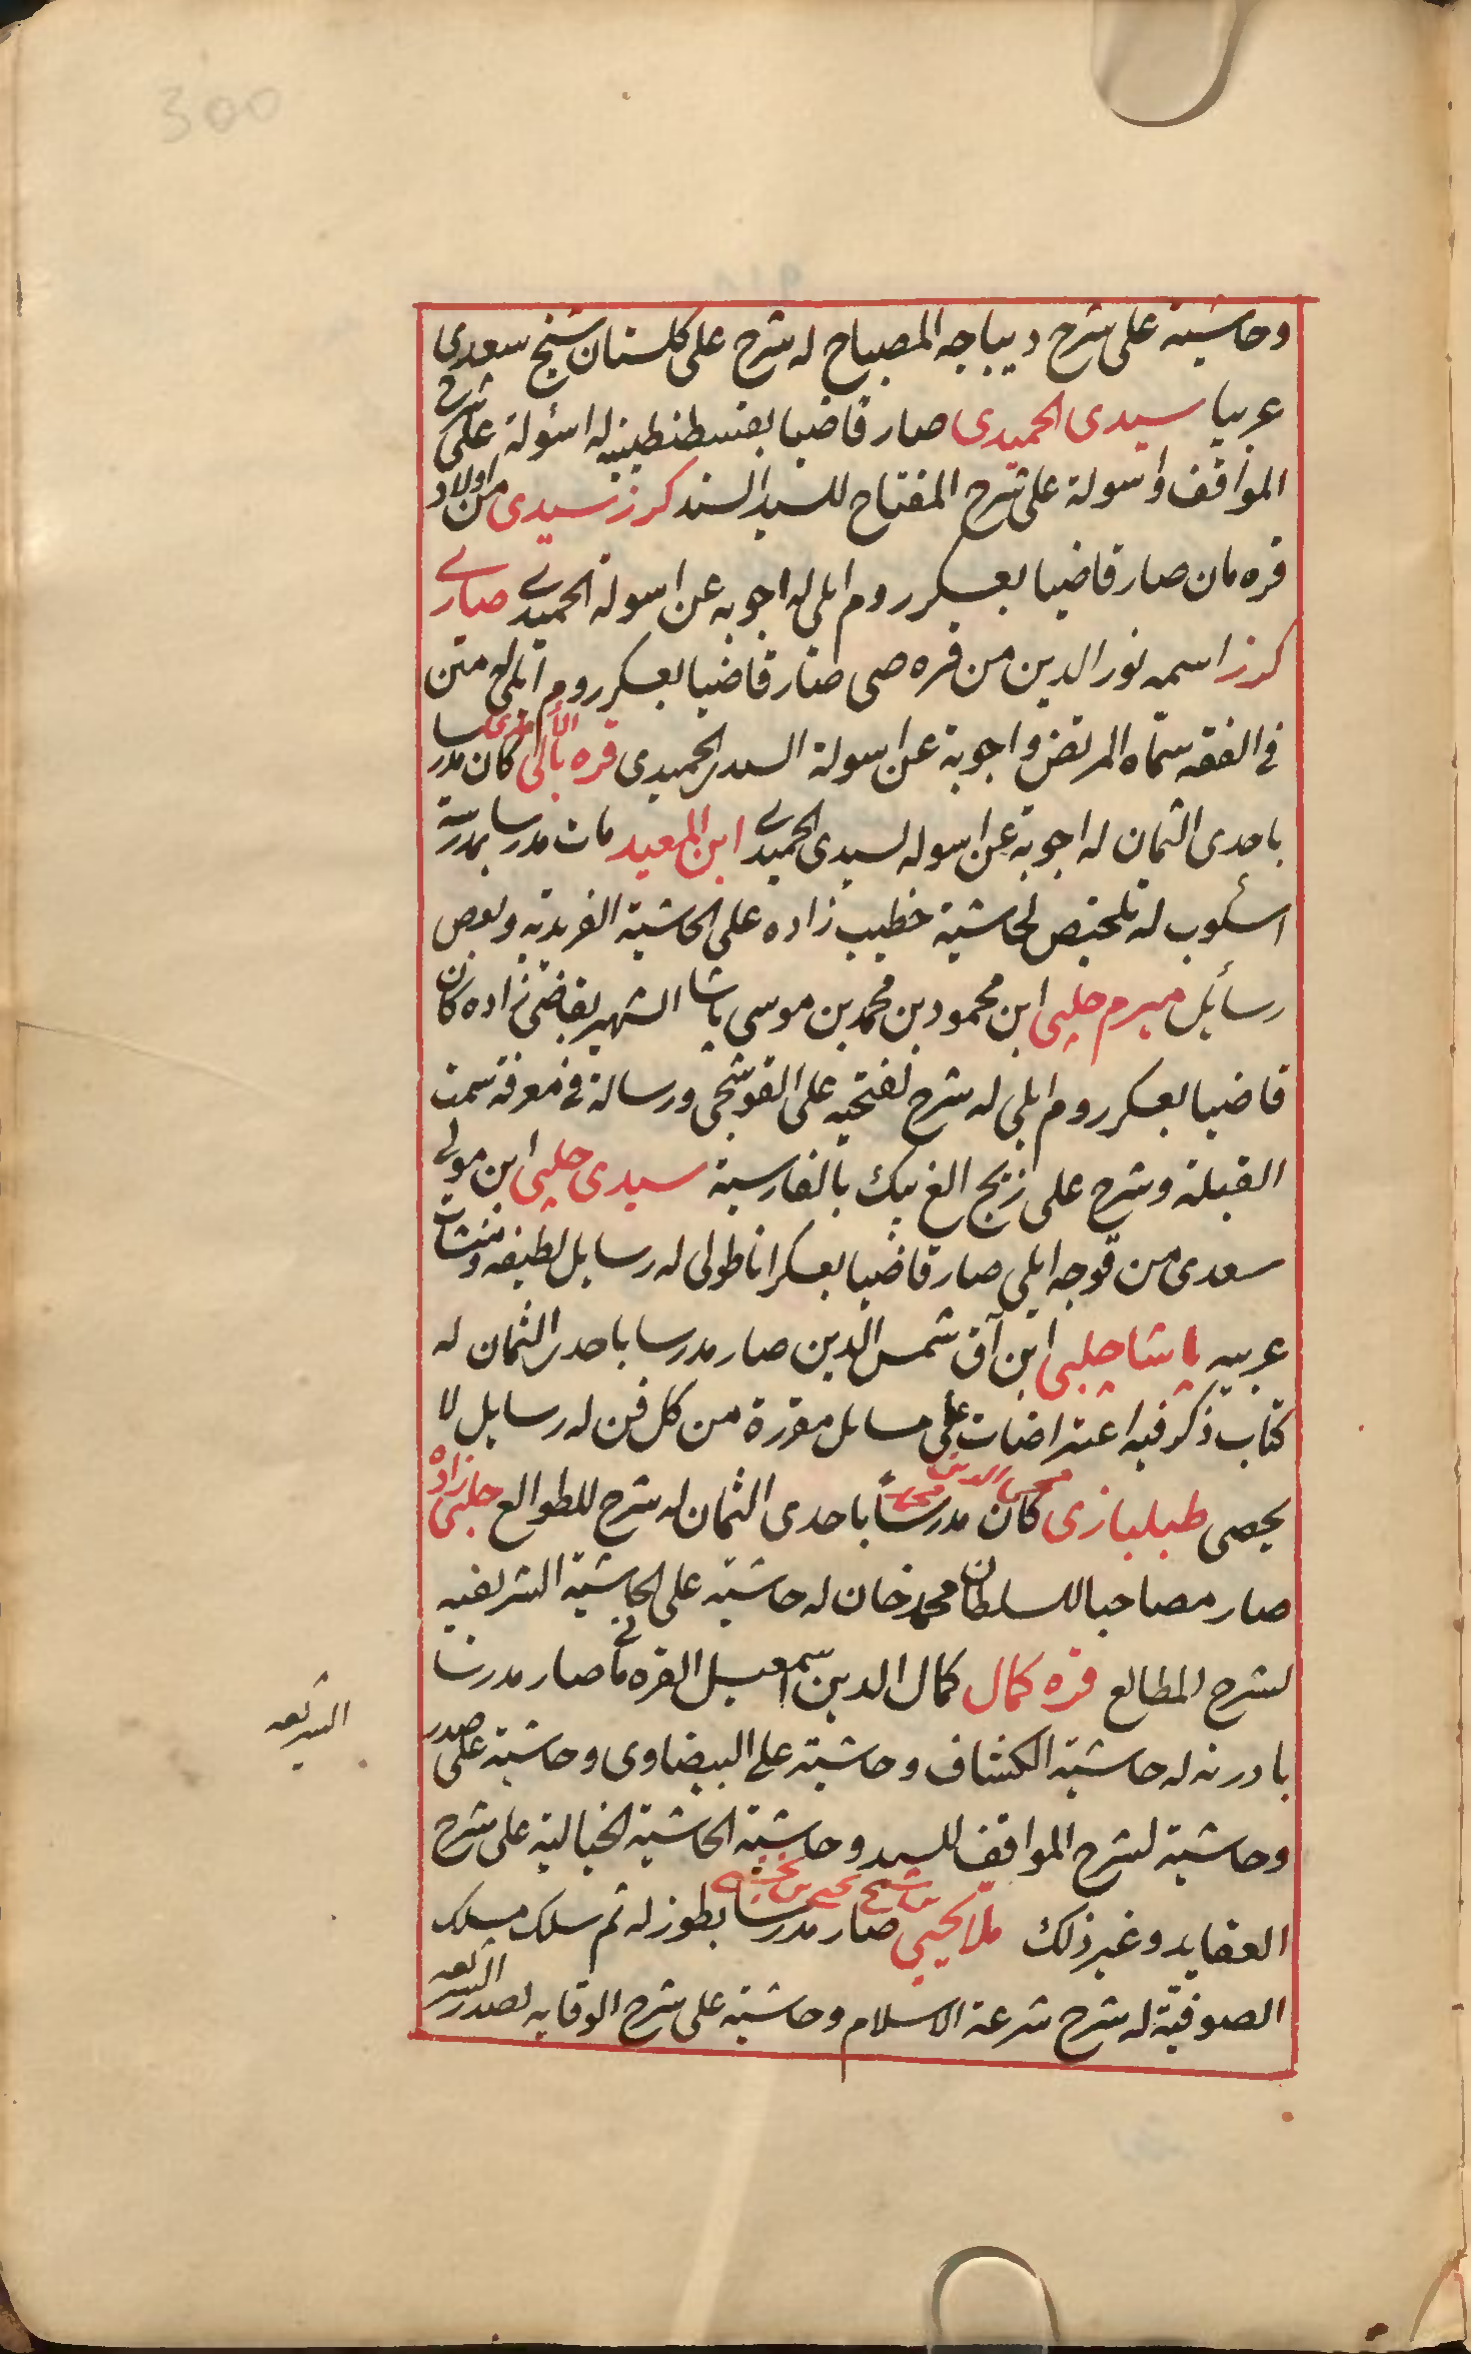 300
وحاشية على شرح ديباجه المصباح له شرح على كلستان شيخ سعدى
عربيا سيدى الحميدى صار قاضيا بقسطنطينيه له اسؤلة على شرح
المواقف واسولة على شرح المفتاح للسيد السند كرز سيدى من اولاد
قره مان صار قاضيا بعسكر روم ايلى له اجوبه عن اسولة الحميدى صارى
كرز اسمه نور الدين من قره صى صار قاضيا بعسكر روم ايلى له متن
فى الفقه سماه المرتضى واجوبة عن اسولة السيدى الحميدى قره بالى كان مدرسا
باحدى الثمان له اجوبة عن اسوله لسيدى الحميدى ابن المعيد مات مدرسا بمدرسة
اسكوب له تلخيص لحاشية خطيب زاده على الحاشية الفريدية وبعض
رسائل ميرم چلپى ابن محمود بن محمد بن موسى پاشا الشهير بقاضى زاده كان
قاضيا بعسكر روم ايلى له شرح لفتحيه على القوشجى ورسالة فى معرفة سمت
القبلة وشرح على زيج الغ بيك بالفارسية سيدى چلپى ابن مولى
سعدى من قوجه ايلى صار قاضيا بعسكر اناطولى له رسايل لطيفه ومنشات
عربيه پاشا چلبى ابن آق شمس الدين صار مدرسا باحدى الثمان له
كتاب ذكر فيه اعتراضات على مسائل مقررة من كل فن له رسايل لا
يحصى طبلبازى محيى الدين محمد كان مدرساً باحدى الثمان له شرح للطوالع حلبى زاده
صار مصاحبا للسلطان محمد خان له حاشية على الحاشية الشريفيه
لشرح المطالع قره كمال كمال الدين اسمعيل القره مانى صار مدرسا
بادرنه له حاشية الكشاف وحاشية على البيضاوى وحاشية على صدر
الشريعه
وحاشية لشرح المواقف للسيد وحاشية الحاشية الخيالية على شرح
العقايد وغير ذلك ملا يحيى صار مدرسا بطوزله ثم سلك مسلك
الصوفية له شرح شرعة الاسلام وحاشية على شرح الوقايه لصدر الشريعه